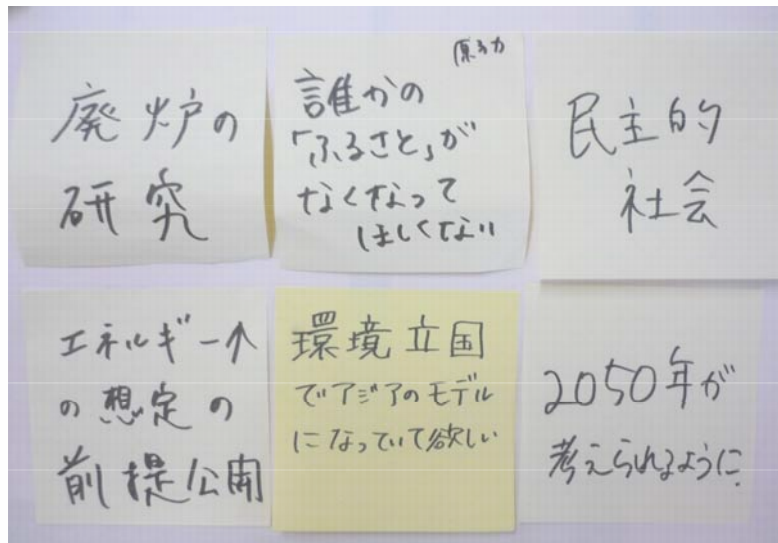 廃炉の
研究
原子力
誰かの
「ふるさと」が
なくなって
ほしくない
民主的
社会
エネルギー↑
の想定の
前提公開
環境立国
でアジアのモデル
になっていて欲しい
2050年が
考えられるように